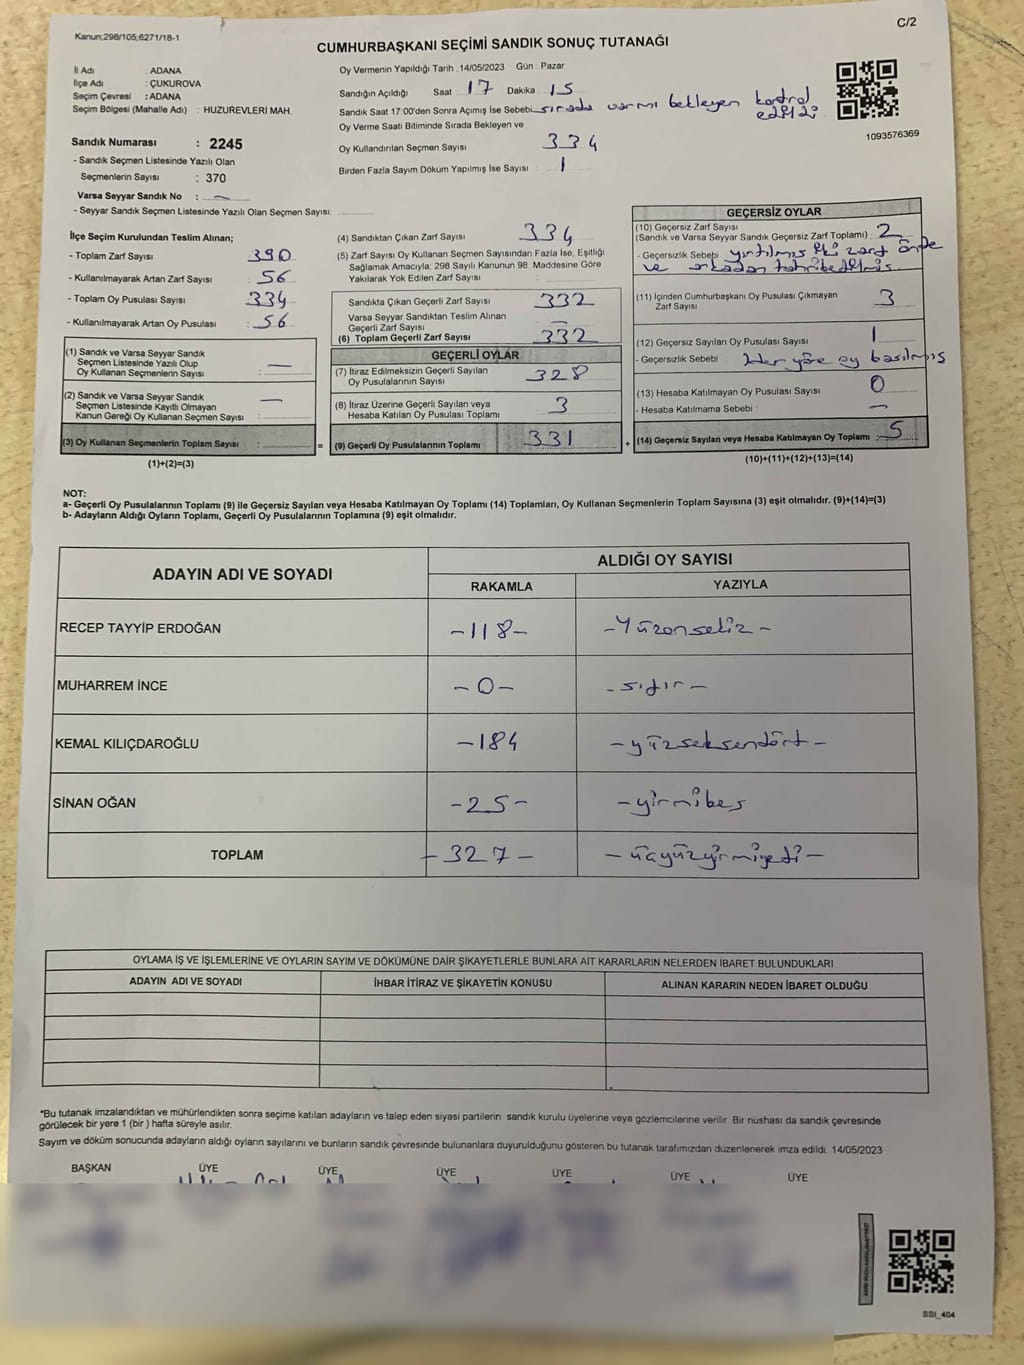 C/2
Kanun;298/105;6271/18-1
CUMHURBAŞKANI SEÇİMİ SANDIK SONUÇ TUTANAĞI
İl Adı : ADANA
İlçe Adı : ÇUKUROVA
Seçim Çevresi : ADANA
Seçim Bölgesi (Mahalle Adı) : HUZUREVLERİ MAH.
Sandık Numarası : 2245
- Sandık Seçmen Listesinde Yazılı Olan
Seçmenlerin Sayısı : 370
Varsa Seyyar Sandık No : –
- Seyyar Sandık Seçmen Listesinde Yazılı Olan Seçmen Sayısı:
Oy Vermenin Yapıldığı Tarih : 14/05/2023 Gün : Pazar
Sandığın Açıldığı Saat 17 Dakika 15
Sandık Saat 17:00'den Sonra Açımış İse Sebebi sırada varmı bekleyen kontrol
edildi
Oy Verme Saati Bitiminde Sırada Bekleyen ve
Oy Kullandırılan Seçmen Sayısı 334
Birden Fazla Sayım Döküm Yapılmış İse Sayısı : 1
1093576369
İlçe Seçim Kurulundan Teslim Alınan;
- Toplam Zarf Sayısı : 390
- Kullanılmayarak Artan Zarf Sayısı : 56
- Toplam Oy Pusulası Sayısı : 334
- Kullanılmayarak Artan Oy Pusulası : 56
(1) Sandık ve Varsa Seyyar Sandık
Seçmen Listesinde Yazılı Olup
Oy Kullanan Seçmenlerin Sayısı : –
(2) Sandık ve Varsa Seyyar Sandık
Seçmen Listesinde Kayıtlı Olmayan
Kanun Gereği Oy Kullanan Seçmen Sayısı : –
(3) Oy Kullanan Seçmenlerin Toplam Sayısı : =
(1)+(2)=(3)
(4) Sandıktan Çıkan Zarf Sayısı 334
(5) Zarf Sayısı Oy Kullanan Seçmen Sayısından Fazla İse, Eşitliği
Sağlamak Amacıyla; 298 Sayılı Kanunun 98 Maddesine Göre
Yakılarak Yok Edilen Zarf Sayısı :
Sandıkta Çıkan Geçerli Zarf Sayısı 332
Varsa Seyyar Sandıktan Teslim Alınan
Geçerli Zarf Sayısı –
(6) Toplam Geçerli Zarf Sayısı 332
GEÇERLİ OYLAR
(7) İtiraz Edilmeksizin Geçerli Sayılan
Oy Pusulalarının Sayısı 328
(8) İtiraz Üzerine Geçerli Sayılan veya
Hesaba Katılan Oy Pusulası Toplamı 3
(9) Geçerli Oy Pusulalarının Toplamı 331 +
GEÇERSİZ OYLAR
(10) Geçersiz Zarf Sayısı
(Sandık ve Varsa Seyyar Sandık Geçersiz Zarf Toplamı) : 2
- Geçersizlik Sebebi yırtılmış iki zarf önde
ve arkadan tahribedilmiş
(11) İçinden Cumhurbaşkanı Oy Pusulası Çıkmayan
Zarf Sayısı 3
(12) Geçersiz Sayılan Oy Pusulası Sayısı 1
- Geçersizlik Sebebi Her yöre oy basılmış
(13) Hesaba Katılmayan Oy Pusulası Sayısı 0
- Hesaba Katılmama Sebebi : –
(14) Geçersiz Sayılan veya Hesaba Katılmayan Oy Toplamı : 5
(10)+(11)+(12)+(13)=(14)
NOT:
a- Geçerli Oy Pusulalarının Toplamı (9) ile Geçersiz Sayılan veya Hesaba Katılmayan Oy Toplamı (14) Toplamları, Oy Kullanan Seçmenlerin Toplam Sayısına (3) eşit olmalıdır. (9)+(14)=(3)
b- Adayların Aldığı Oyların Toplamı, Geçerli Oy Pusulalarının Toplamına (9) eşit olmalıdır.
ADAYIN ADI VE SOYADI
ALDIĞI OY SAYISI
RAKAMLA YAZIYLA
RECEP TAYYİP ERDOĞAN -118- -Yüzonsekiz-
MUHARREM İNCE -0- -sıfır-
KEMAL KILIÇDAROĞLU -184 -yüzseksendört-
SİNAN OĞAN -25- -yirmibeş
TOPLAM -327- -üçyüzyirmiyedi-
OYLAMA İŞ VE İŞLEMLERİNE VE OYLARIN SAYIM VE DÖKÜMÜNE DAİR ŞİKAYETLERLE BUNLARA AİT KARARLARIN NELERDEN İBARET BULUNDUKLARI
ADAYIN ADI VE SOYADI İHBAR İTİRAZ VE ŞİKAYETİN KONUSU ALINAN KARARIN NEDEN İBARET OLDUĞU
*Bu tutanak imzalandıktan ve mühürlendikten sonra seçime katılan adayların ve talep eden siyasi partilerin sandık kurulu üyelerine veya gözlemcilerine verilir. Bir nüshası da sandık çevresinde
görülecek bir yere 1 (bir) hafta süreyle asılır.
Sayım ve döküm sonucunda adayların aldığı oyların sayılarını ve bunların sandık çevresinde bulunanlara duyurulduğunu gösteren bu tutanak tarafımızdan düzenlenerek imza edildi. 14/05/2023
BAŞKAN ÜYE ÜYE ÜYE ÜYE ÜYE ÜYE
SSI_404